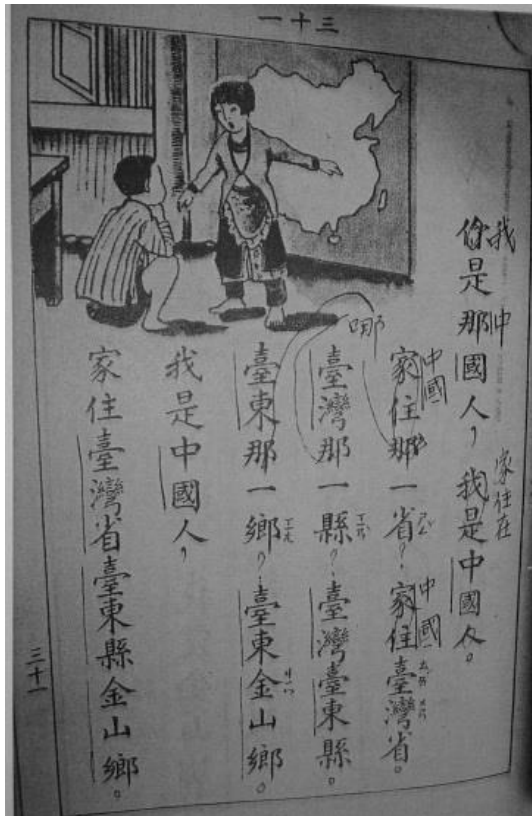 三十一
我
中
家住在
你是那國人，我是中國人。
中國
中國
家住那一省？家住臺灣省。
哪
臺灣那一縣？臺灣臺東縣。
臺東那一鄉？臺東金山鄉。
我是中國人，
家住臺灣省臺東縣金山鄉。
三十一